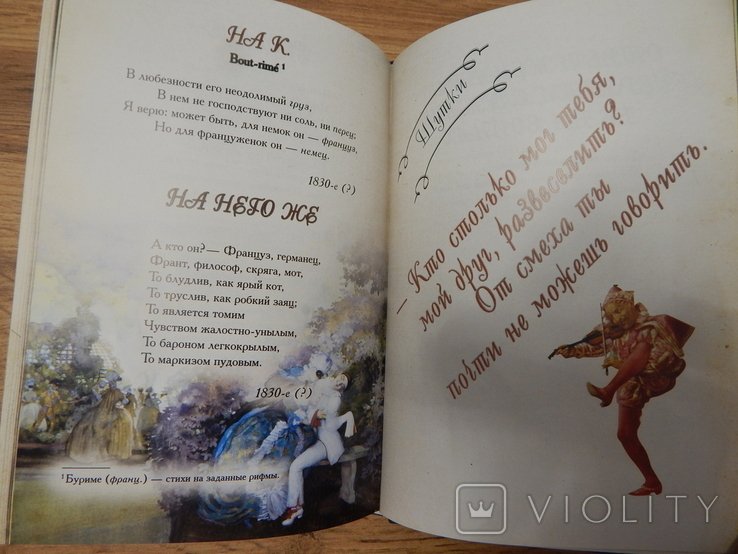 НА К.
Bout-rimé ¹
В любезности его неодолимый груз,
В нем не господствуют ни соль, ни перец;
Я верю: может быть, для немок он — француз,
Но для француженок он — немец.
1830-е (?)
НА НЕГО ЖЕ
А кто он? — Француз, германец,
Франт, философ, скряга, мот,
То блудлив, как ярый кот,
То труслив, как робкий заяц;
То является томим
Чувством жалостно-унылым,
То бароном легкокрылым,
То маркизом пудовым.
1830-е (?)
¹ Буриме (франц.) — стихи на заданные рифмы.
Шутки
— Кто столько мог тебя,
мой друг, развеселить?
От смеха ты
почти не можешь говорить.
VIOLITY